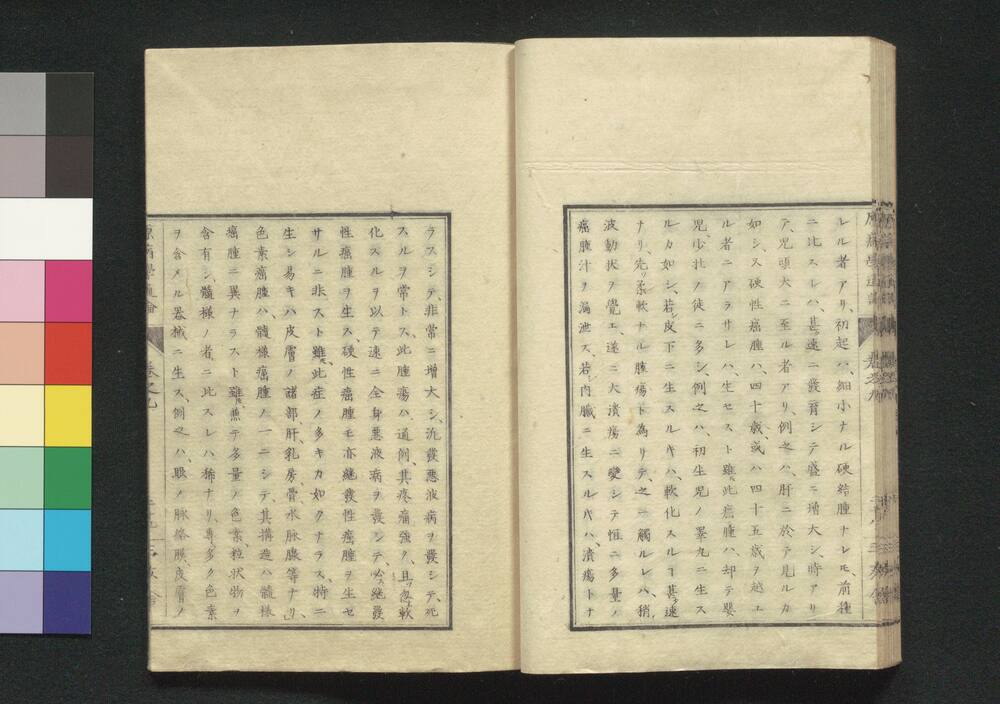 レル者アリ、初起ハ、細小ナル硬結腫ナレ𪜈、前種
ニ比スレハ、甚タ速ニ發育シテ盛ニ増大シ、時アリ
テ、児頭大ニ至ル者アリ、例之ハ、肝ニ於テ見ルカ
如シ、又硬性癌腫ハ、四十歳或ハ四十五歳ヲ越エ
ル者ニアラサレハ、生セスト雖𪜈、此癌腫ハ、却テ嬰
児、少壮ノ徒ニ多シ、例之ハ、初生児ノ睾丸ニ生ス
ルカ如シ、若シ皮下ニ生スルキハ、軟化スルヿ甚タ速
ナリ、先ツ柔軟ナル腫瘍ト為リテ、之ニ觸ルレハ、稍
波動状ヲ覺エ、遂ニ大潰瘍ニ變シテ恒ニ多量ノ
癌腫汁ヲ漏泄ス、若シ内臓ニ生スル𪜈ハ、潰瘍トナ
ラスシテ、非常ニ増大シ、沈發悪液病ヲ發シテ、死
スルヲ常トス、此腫瘍ハ、通例、其疼痛強ク、且ツ忽チ軟
化スルヲ以テ速ニ全身悪液病ヲ發シテ、必ス継發
性癌腫ヲ生ス硬性癌腫モ亦継發性癌腫ヲ生セ
サルニ非スト雖𪜈、此症ノ多キカ如クナラス、特ニ
生シ易キハ皮膚ノ諸部、肝、乳房、骨、水脉腺等ナリ、
色素癌腫ハ、髓様癌腫ノ一ニシテ、其構造ハ髓様
癌腫ニ異ナラスト雖𪜈、兼テ多量ノ色素粒状物ヲ
含有シ、髓様ノ者ニ比スレハ稀ナリ、專ラ多ク色素
ヲ含メル器械ニ生ス、例之ハ、眼ノ脉絡膜、皮膚ノ